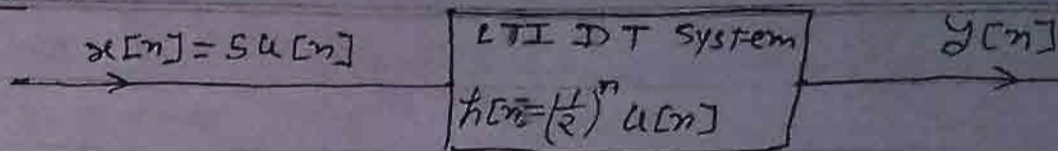 x[n]=5u[n]
LTI DT System
y[n]
h[n]=(1/2)^n u[n]